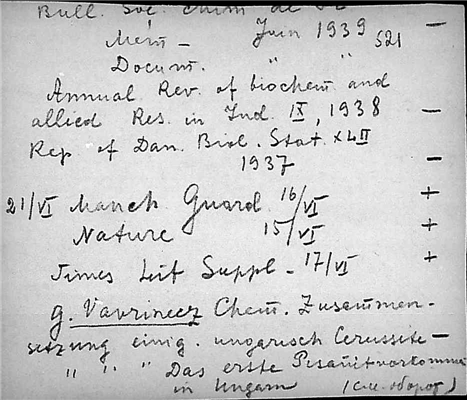 Bull. Soc. Chim de —
Mém — Juin 1939 521
Docum. " "
Annual Rev. of biochem and
allied Res. in Ind. IX, 1938 —
Rep. of Dan. Biol. Stat. XLII
1937 —
21/VI Manch Guard. 16/VI +
Nature 15/VI +
Times Lit Suppl — 17/VI +
G. Vavrinecz Chem. Zusammen-
setzung einig. ungarisch Cerussite —
" " " Das erste Pisanitvorkomme
in Ungarn (см. оборот)